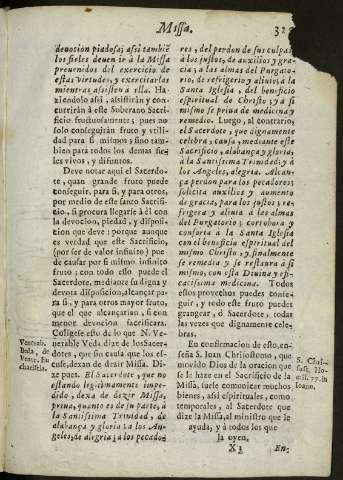 Missa.
devocion piadosa; asi tambiē
los fieles deven ir à la Missa
prevenidos del exercicio de
estas virtudes, y exercitarlas
mientras assisten à ella. Ha-
ziendolo assi, assistirán y con-
currirán à este Soberano Sacri-
ficio fructuosamente; pues no
solo conseguirán fruto y utili-
dad para si mismos y sino tam-
bien para todos los demas fie-
les vivos, y difuntos.
Deve notar aqui el Sacerdo-
te, quan grande fruto puede
conseguir, para si, y para otros,
por medio de este santo Sacrifi-
cio, si procura llegarse à él con
la devocion, piedad, y disposi-
cion que deve: porque aunque
es verdad que este Sacrificio,
(por ser de valor infinito) pue-
de causar por si mismo infinito
fruto; con todo esso puede el
Sacerdote, mediante su digna y
devota disposicion, alcançar pa-
ra si, y para otros mayor fruto,
que el que alcançarian, si con
menor devocion sacrificara.
Coligese esto de lo que N. Ve-
nerable Veda dize de los Sacer-
dotes, que sin causa que los es-
cuse, dexan de dezir Missa. Di-
ze pues. El Sacerdote, que no
estando legitimamente impe-
dido, dexa de dezir Missa,
priva, quanto es de su parte, à
la Santissima Trinidad, de
alabança y gloria: à los An-
geles, de alegria: à los pecado-
Venerab.
Beda, de
Vener. Eu-
charistia.
res, del perdon de sus culpas:
à los justos, de auxilios y gra-
cia; à las almas del Purgato-
rio, de refrigerio y alivio; à la
Santa Iglesia, del beneficio
espiritual de Christo; y à si
mismo se priva de medicina y
remedio. Luego, al contrario,
el Sacerdote, que dignamente
celebra, causa, mediante este
Sacrificio, alabança y gloria,
à la Santissima Trinidad; y à
los Angeles, alegria. Alcan-
ça perdon para los pecadores;
solicita auxilios y aumento
de gracia, para los justos; re-
frigera y alivia à las almas
del Purgatorio; corrobora y
conforta à la Santa Iglesia
con el beneficio espiritual del
mismo Christo, y finalmente
se remedia y se restaura à si
mismo, con esta Divina y es-
caíissima medicina. Todos
estos provechos puedes conse-
guir, y todo este fruto puedes
grangear, ó Sacerdote, todas
las vezes que dignamente cele-
bras.
En confirmacion de esto, en-
seña S. Ioan Chrisostomo, que
movido Dios de la oracion que
se le haze en el Sacrificio de la
Missa, suele comunicar muchos
bienes, assi espirituales, como
temporales, al Sacerdote que
dize la Missa, al ministro que le
ayuda, y à todos los que
la oyen.
S. Chri-
sost. Ho-
mil. 77. in
Ioann.
X3
En-